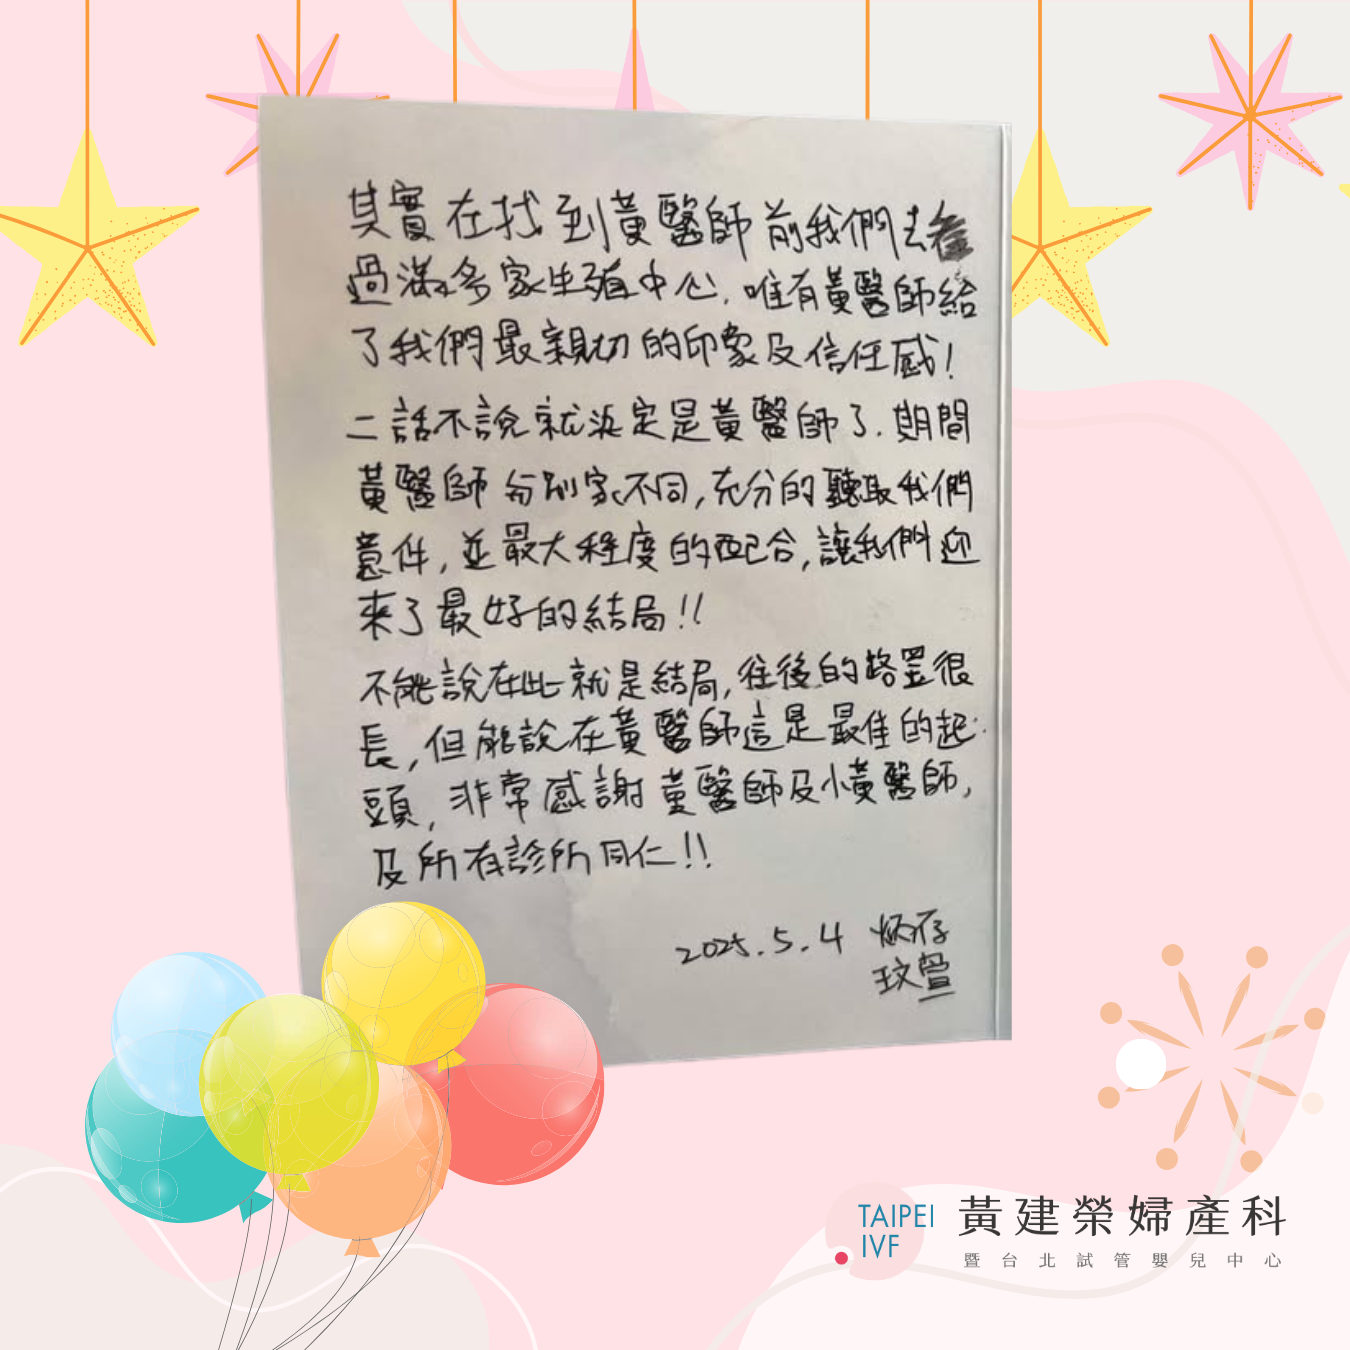 其實在找到黃醫師前我們去
過滿多家生殖中心,唯有黃醫師給
了我們最親切的印象及信任感!
二話不說就決定是黃醫師了.期間
黃醫師與別家不同,充分的聽取我們
意件,並最大程度的配合,讓我們迎
來了最好的結局!!
不能說在此就是結局,往後的路還很
長,但能說在黃醫師這是最佳的起
頭,非常感謝黃醫師及小黃醫師,
及所有診所同仁!!
2025.5.4 炳存
玟萱
TAIPEI
IVF
黃建榮婦產科
暨台北試管嬰兒中心